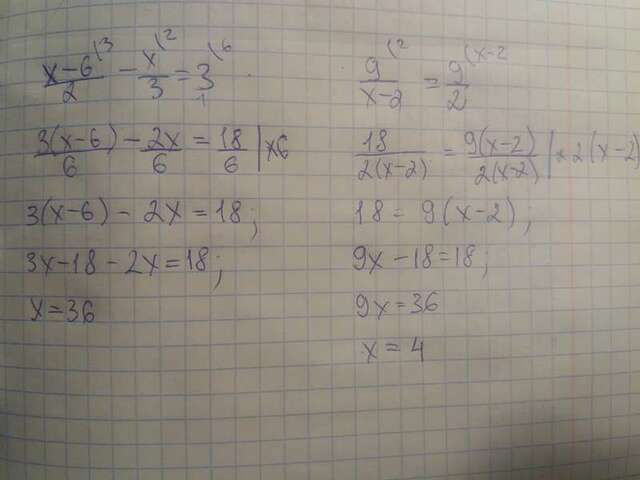 (x-6)/2 \(3 - x/3 \(2 = 3/1 \(6
3(x-6)/6 - 2x/6 = 18/6 | ×6
3(x-6) - 2x = 18;
3x-18-2x=18;
x=36
9/(x-2) \(2 = 9/2 \(x-2
18/2(x-2) = 9(x-2)/2(x-2) | ×2(x-2)
18 = 9(x-2);
9x-18=18;
9x=36
x=4